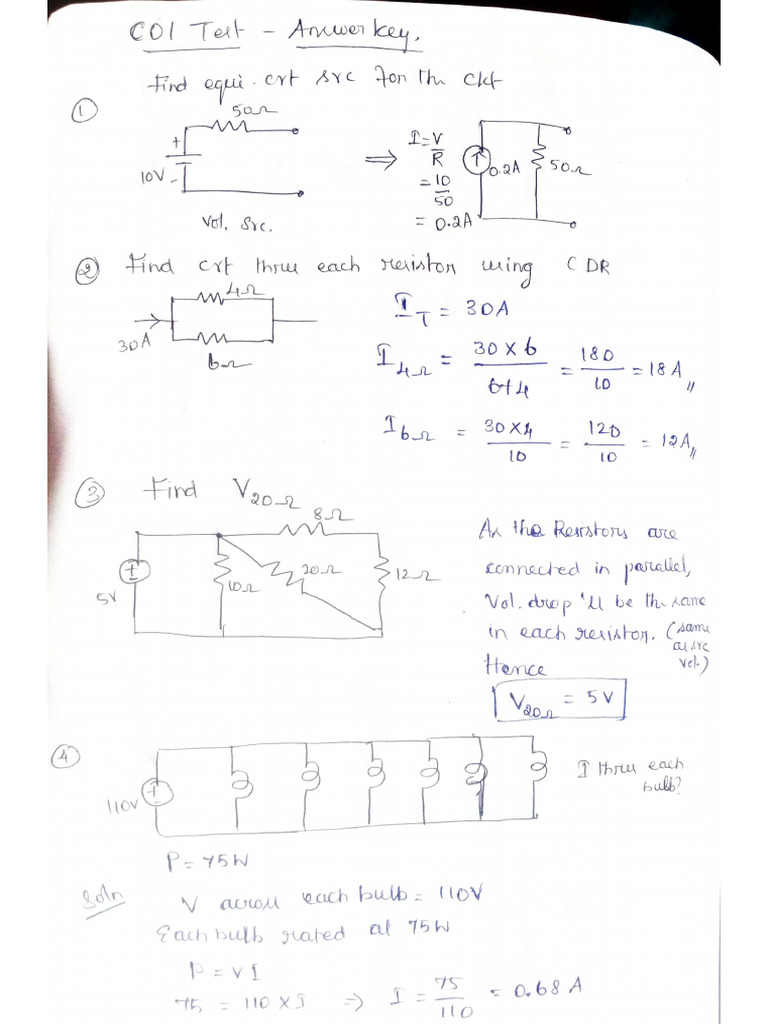 CO1 Test - Answer key.
Find equi. crt src for the ckt
①
50Ω
+
10V -
Vol. Src.
⇒
I = V/R
= 10/50
= 0.2A
0.2A
50Ω
② Find crt thru each resistor using CDR
4Ω
30A
6Ω
I_T = 30A
I_4Ω = 30 × 6 / 6+4 = 180/10 = 18A //
I_6Ω = 30 × 4 / 10 = 120/10 = 12A //
③ Find V_20Ω
8Ω
5V
10Ω
20Ω
12Ω
As the Resistors are
connected in parallel,
Vol. drop 'll be the same
in each resistor. (same
as src
vol.)
Hence
V_20Ω = 5V
④
110V
I thru each
bulb?
P = 75W
Soln
V across each bulb = 110V
Each bulb rated at 75W
P = VI
75 = 110 × I ⇒ I = 75/110 = 0.68 A